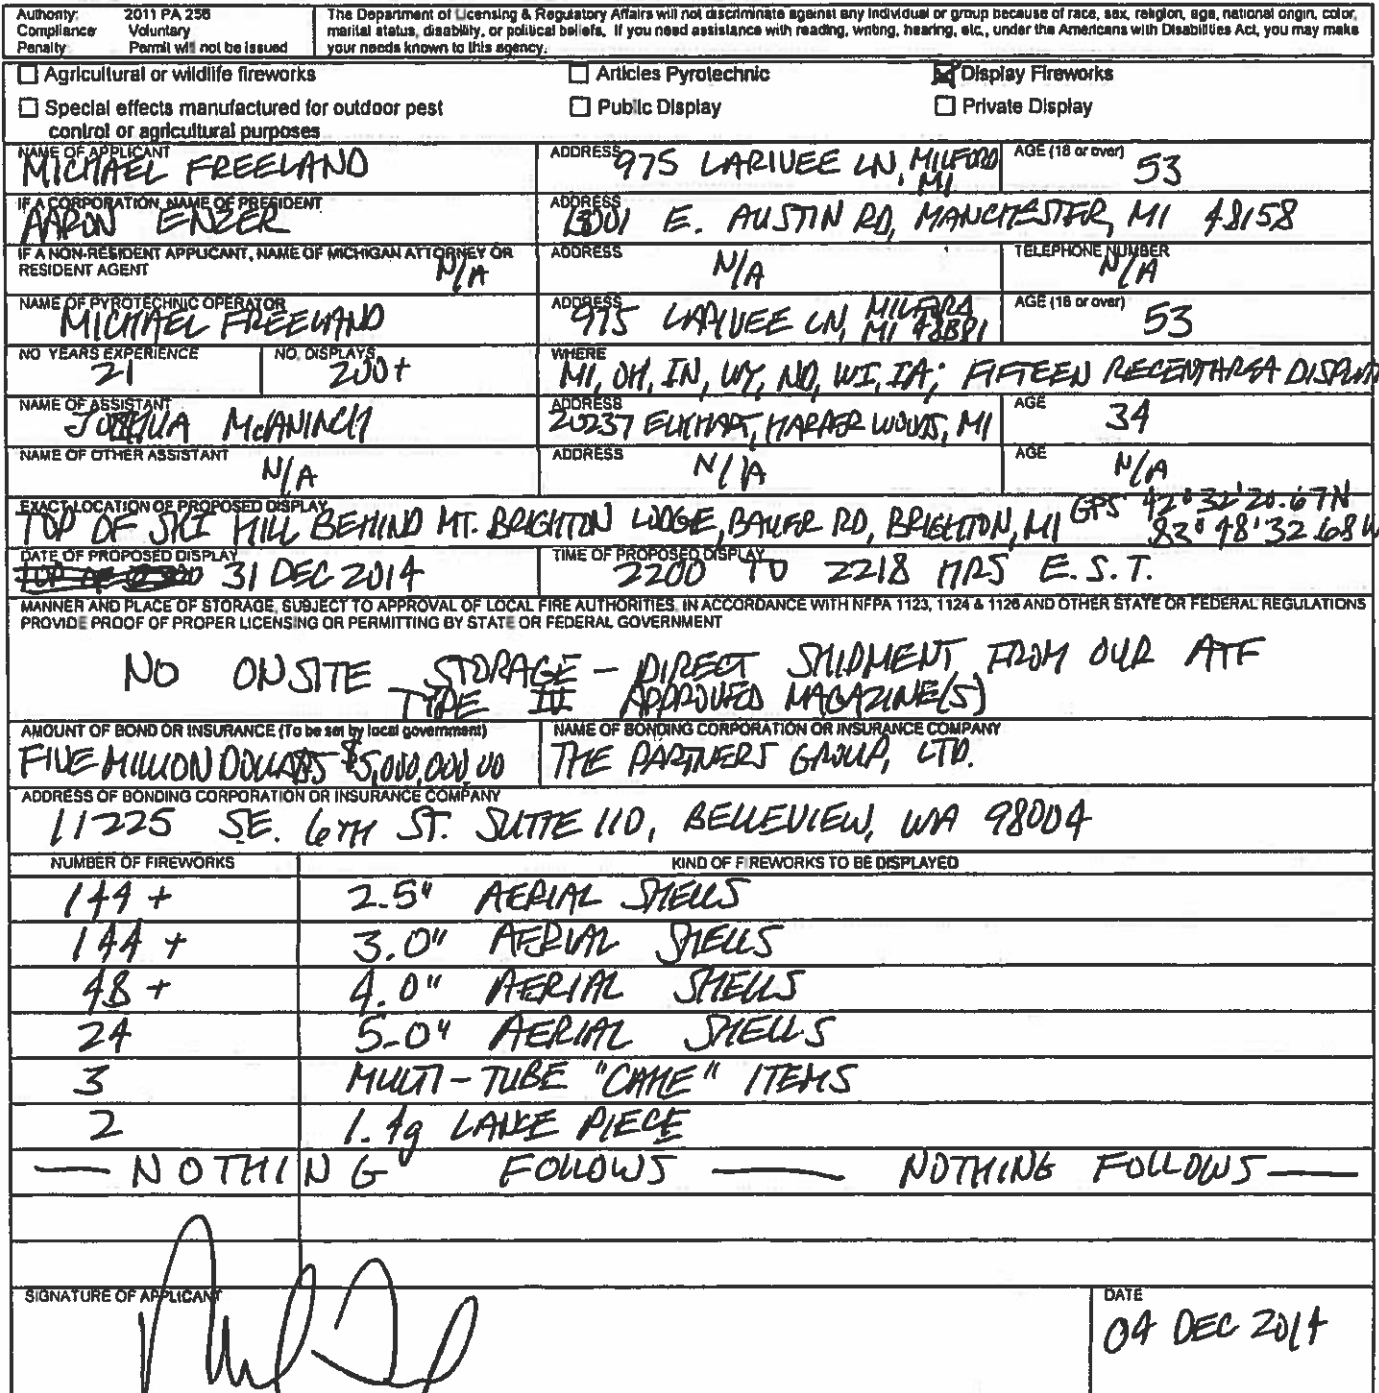 Authority: 2011 PA 256
Compliance Voluntary
Penalty Permit will not be issued
The Department of Licensing & Regulatory Affairs will not discriminate against any individual or group because of race, sex, religion, age, national origin, color,
marital status, disability, or political beliefs. If you need assistance with reading, writing, hearing, etc., under the Americans with Disabilities Act, you may make
your needs known to this agency.
Agricultural or wildlife fireworks Articles Pyrotechnic Display Fireworks
Special effects manufactured for outdoor pest Public Display Private Display
control or agricultural purposes
NAME OF APPLICANT ADDRESS AGE (18 or over)
MICHAEL FREELAND 975 LARIVEE LN, MILFORD MI 53
IF A CORPORATION, NAME OF PRESIDENT ADDRESS
AARON ENZER E. AUSTIN RD, MANCHESTER, MI 48158
IF A NON-RESIDENT APPLICANT, NAME OF MICHIGAN ATTORNEY OR ADDRESS TELEPHONE NUMBER
RESIDENT AGENT N/A N/A N/A
NAME OF PYROTECHNIC OPERATOR ADDRESS AGE (18 or over)
MICHAEL FREELAND 975 LARIVEE LN, MILFORD MI 48381 53
NO YEARS EXPERIENCE NO. DISPLAYS WHERE
21 200+ MI, OH, IN, WY, ND, WI, IA; FIFTEEN RECENT AREA DISPLAYS
NAME OF ASSISTANT ADDRESS AGE
JOSHUA McANINCH 20237 ELKHART, HARPER WOODS, MI 34
NAME OF OTHER ASSISTANT ADDRESS AGE
N/A N/A N/A
EXACT LOCATION OF PROPOSED DISPLAY
TOP OF SKI HILL BEHIND MT. BRIGHTON LODGE, BAUER RD, BRIGHTON, MI GPS 42°32'20.67N
83°48'32.68W
DATE OF PROPOSED DISPLAY TIME OF PROPOSED DISPLAY
31 DEC 2014 2200 TO 2218 HRS E.S.T.
MANNER AND PLACE OF STORAGE, SUBJECT TO APPROVAL OF LOCAL FIRE AUTHORITIES, IN ACCORDANCE WITH NFPA 1123, 1124 & 1126 AND OTHER STATE OR FEDERAL REGULATIONS
PROVIDE PROOF OF PROPER LICENSING OR PERMITTING BY STATE OR FEDERAL GOVERNMENT
NO ONSITE STORAGE - DIRECT SHIPMENT FROM OUR ATF
TYPE IV APPROVED MAGAZINE(S)
AMOUNT OF BOND OR INSURANCE (To be set by local government) NAME OF BONDING CORPORATION OR INSURANCE COMPANY
FIVE MILLION DOLLARS $5,000,000.00 THE PARTNERS GROUP, LTD.
ADDRESS OF BONDING CORPORATION OR INSURANCE COMPANY
11225 SE. 6TH ST. SUITE 110, BELLEVIEW, WA 98004
NUMBER OF FIREWORKS KIND OF FIREWORKS TO BE DISPLAYED
144 + 2.5" AERIAL SHELLS
144 + 3.0" AERIAL SHELLS
48 + 4.0" AERIAL SHELLS
24 5.0" AERIAL SHELLS
3 MULTI-TUBE "CAKE" ITEMS
2 1.4g LANCE PIECE
— NOTHING FOLLOWS — NOTHING FOLLOWS —
SIGNATURE OF APPLICANT DATE
04 DEC 2014